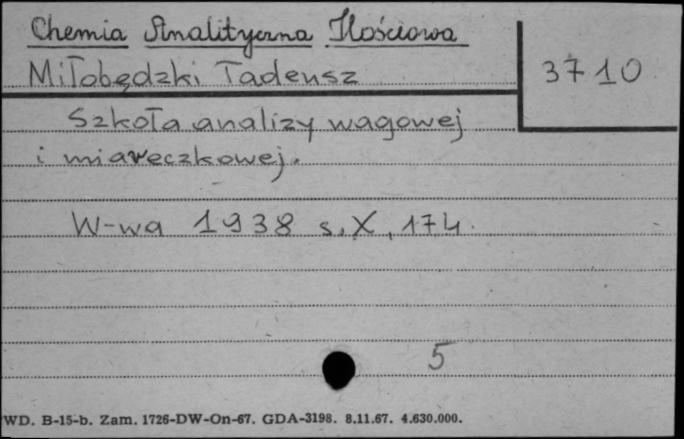 Chemia Analityczna Ilościowa
Miłobędzki Tadeusz
3710
Szkoła analizy wagowej
i miareczkowej.
W-wa 1938 s. X, 174.
5
WD. B-15-b. Zam. 1726-DW-On-67. GDA-3198. 8.11.67. 4.630.000.